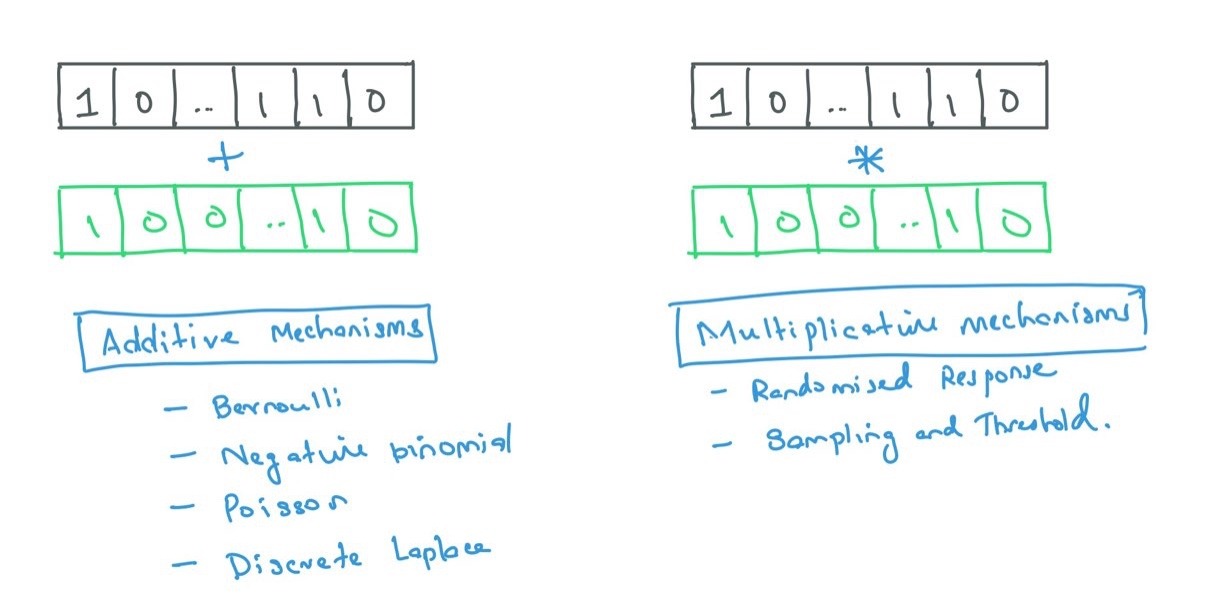 1 0 .. 1 1 0
+
1 0 0 .. 1 0
Additive Mechanisms
- Bernoulli
- Negative binomial
- Poisson
- Discrete Laplace
1 0 .. 1 1 0
*
1 0 0 .. 1 0
Multiplicative mechanisms
- Randomised Response
- Sampling and Threshold.